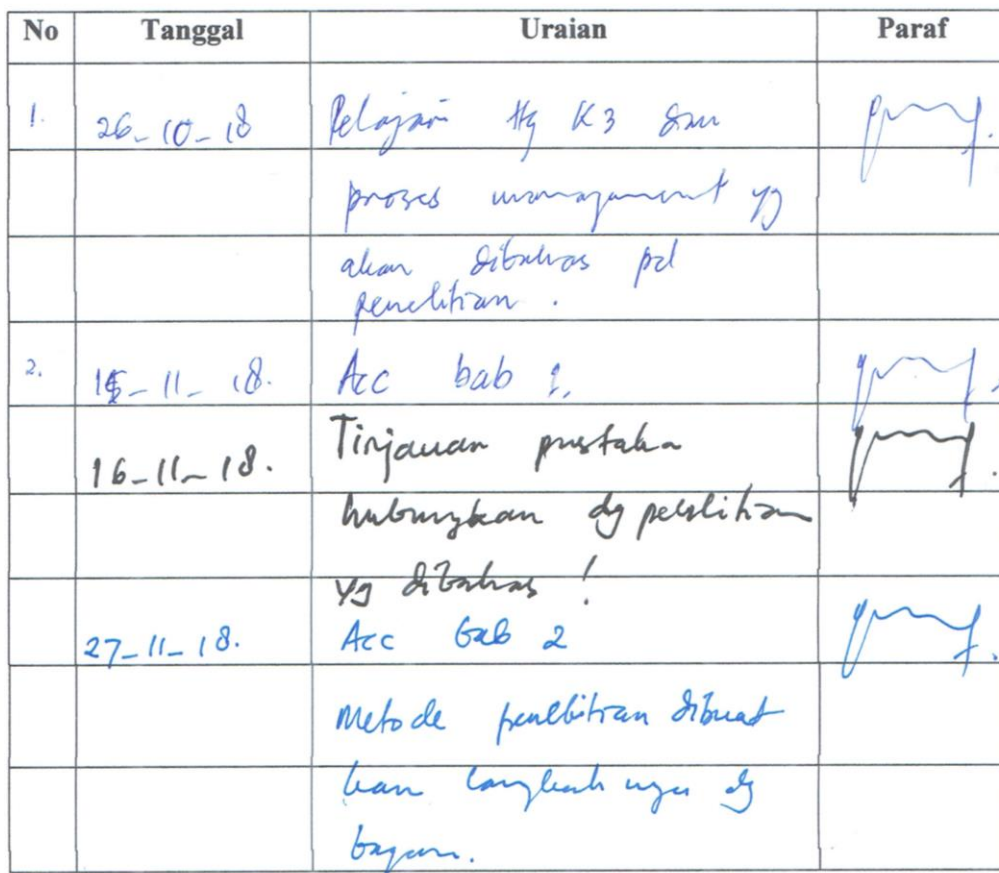 No Tanggal Uraian Paraf
1. 26-10-18 Pelajari ttg K3 dan
proses management yg
akan dibahas pd
penelitian.
2. 15-11-18. Acc bab 1.
16-11-18. Tinjauan pustaka
hubungkan dg penelitian
yg dibahas!
27-11-18. Acc bab 2
Metode penelitian dibuat
kan langkah nya dg
bagan.